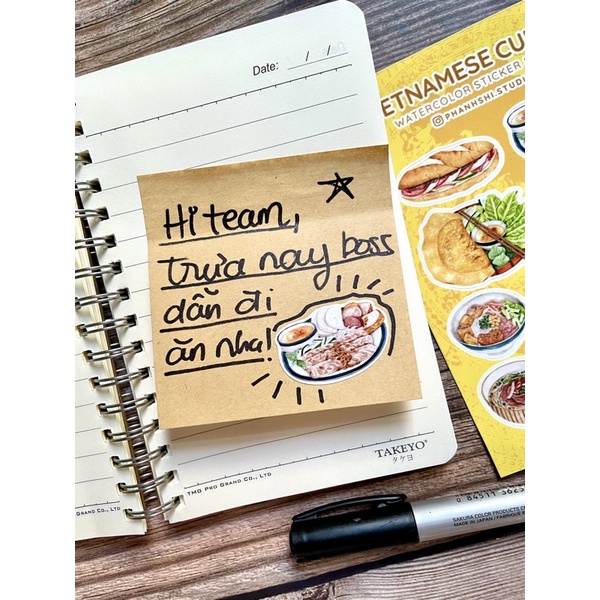 Date: / /
ETNAMESE CU
WATERCOLOR STICKER
PHANHSHI.STUD
Hi team,
trưa nay boss
dẫn đi
ăn nha!
TAKEYO®
タケヨ
TMG PRO GRAND CO., LTD
PRO GRAND CO., LTD
0 84511 3623
SAKURA COLOR PRODUCTS C
MADE IN JAPAN / FABRIQUÉ